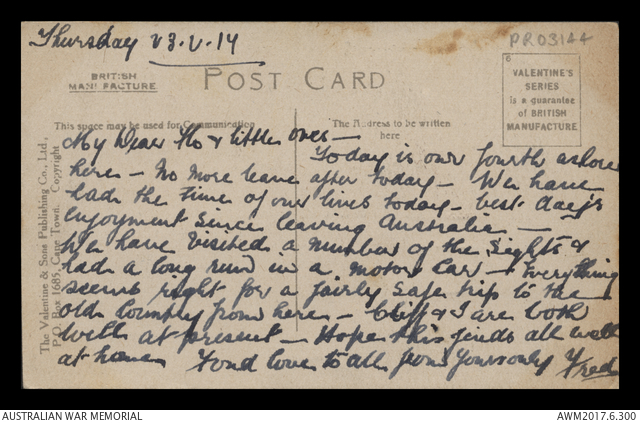 Thursday 23.V.14
PR03144
BRITISH
MANUFACTURE
POST CARD
VALENTINE'S
SERIES
is a guarantee
of BRITISH
MANUFACTURE
This space may be used for Communication
The Address to be written
here
The Valentine & Sons Publishing Co., Ltd.,
P.O. Box 1685, Cape Town. Copyright
My Dear Flo & little ones —
Today is our fourth ashore
here — No more leave after today — We have
had the time of our lives today — best day's
enjoyment since leaving Australia —
We have visited a number of the sights &
had a long run in a motor car — Everything
seems right for a fairly safe trip to the
old Country from here — Cliff & I are both
well at present — Hope this finds all well
at home Fond love to all from yours only Fred
AUSTRALIAN WAR MEMORIAL
AWM2017.6.300